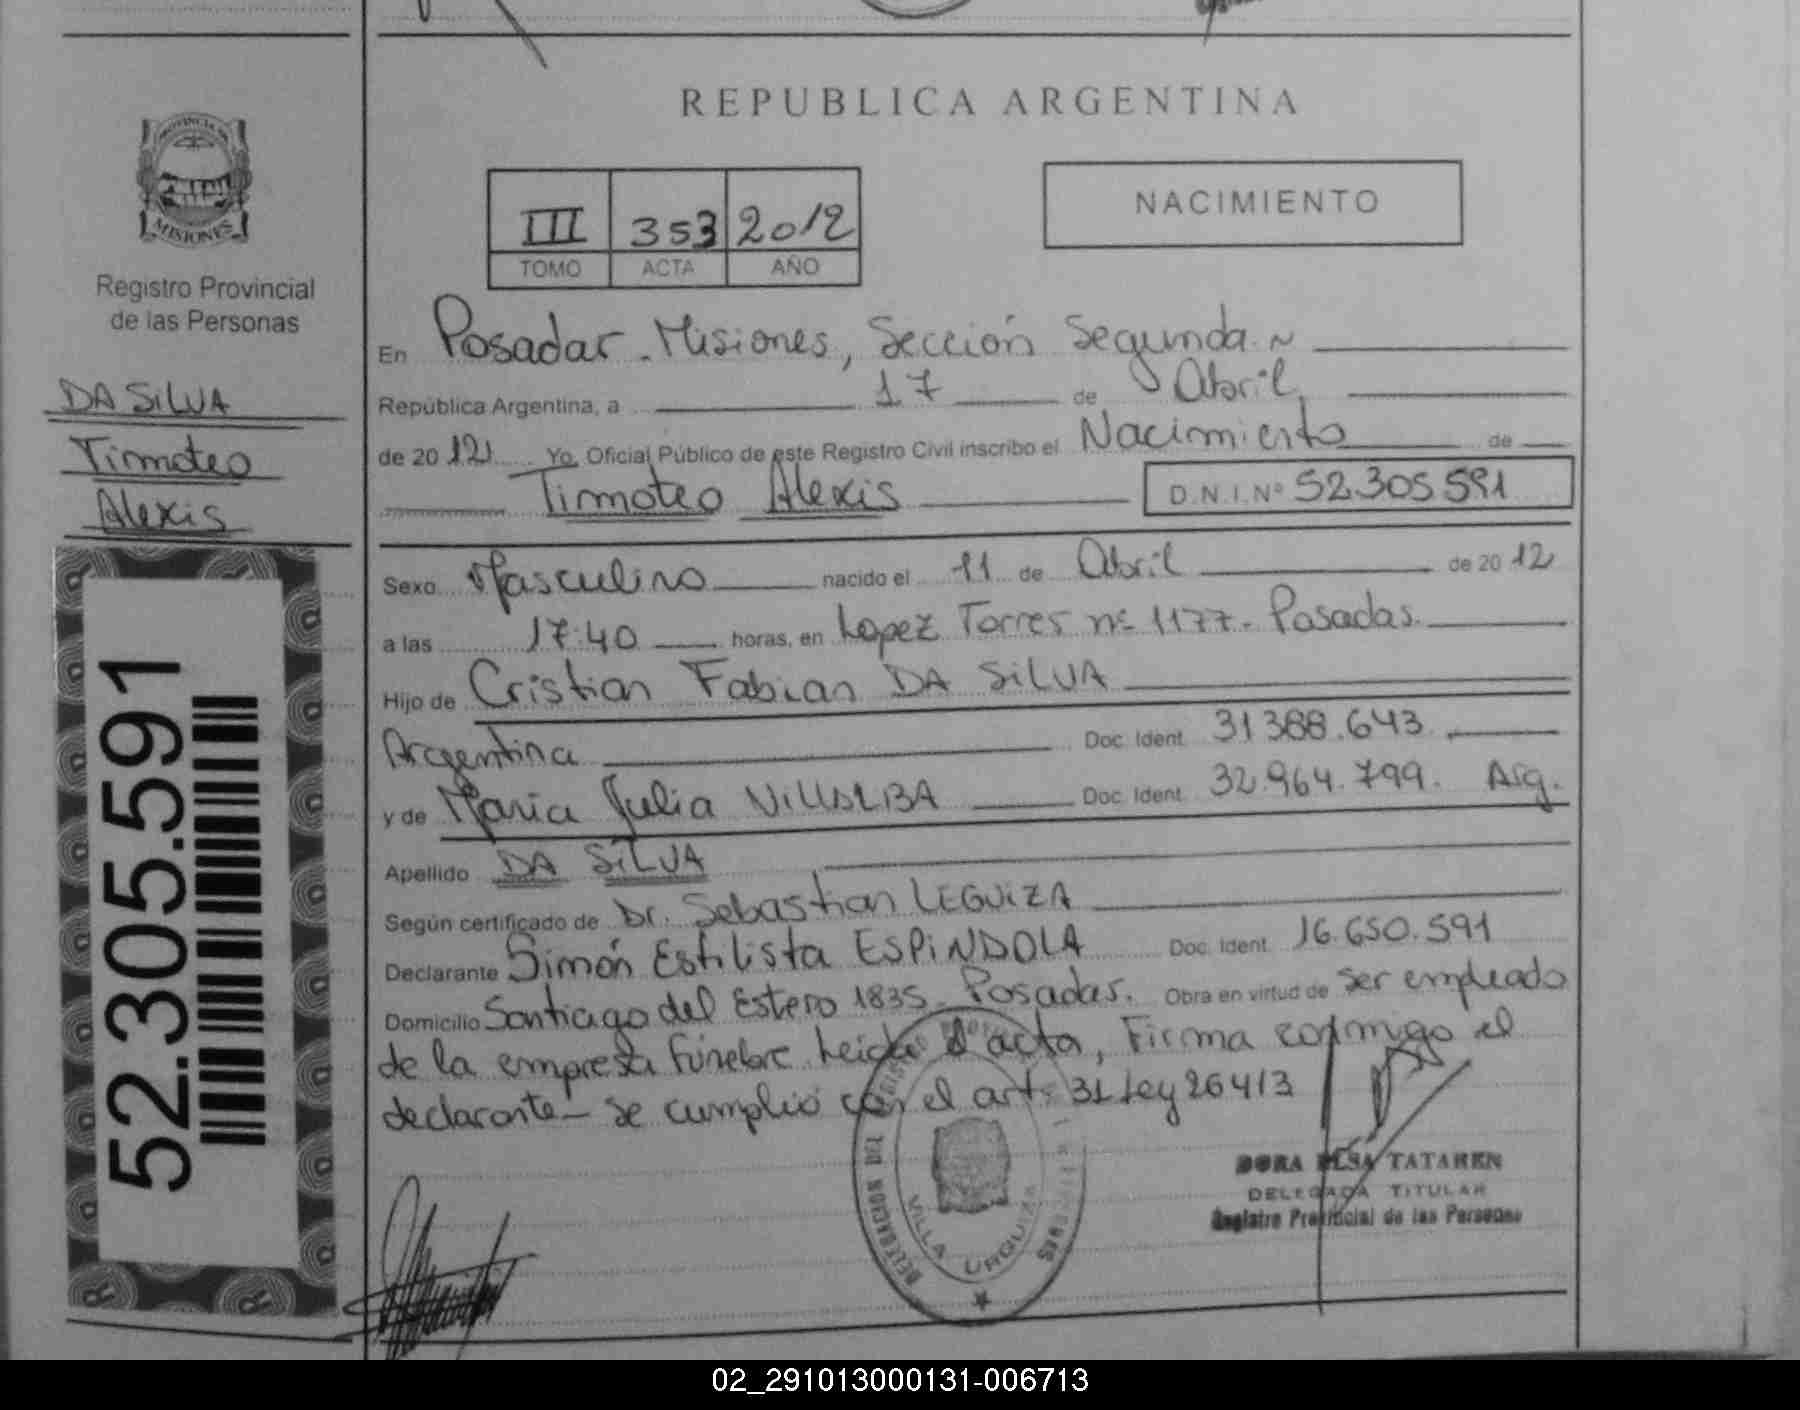 REPUBLICA ARGENTINA
PROVINCIA DE
MISIONES
Registro Provincial
de las Personas
DA SILVA
Timoteo
Alexis
52.305.591
III 353 2012
TOMO ACTA AÑO
NACIMIENTO
En Posadas - Misiones, Sección Segunda
República Argentina, a 17 de Abril
de 20 12 Yo, Oficial Público de este Registro Civil inscribo el Nacimiento de
Timoteo Alexis D.N.I. Nº 52.305.591
Sexo Masculino nacido el 11 de Abril de 20 12
a las 17:40 horas, en Lopez Torres nº 1177 - Posadas.
Hijo de Cristian Fabian DA SILVA
Argentina Doc. Ident. 31388.643
y de Maria Julia VILLALBA Doc. Ident. 32.964.799. Arg.
Apellido DA SILVA
Según certificado de Dr. Sebastian LEGUIZA
Declarante Simón Estilista ESPINDOLA Doc. Ident. 16.650.591
Domicilio Santiago del Estero 1835 - Posadas. Obra en virtud de ser empleado
de la empresa fúnebre. Leida el acta, Firma conmigo el
declarante - Se cumplió con el art. 31 Ley 26413
VILLA URQUIZA
DORA ELSA TATAREN
DELEGADA TITULAR
Registro Provincial de las Personas
02_291013000131-006713